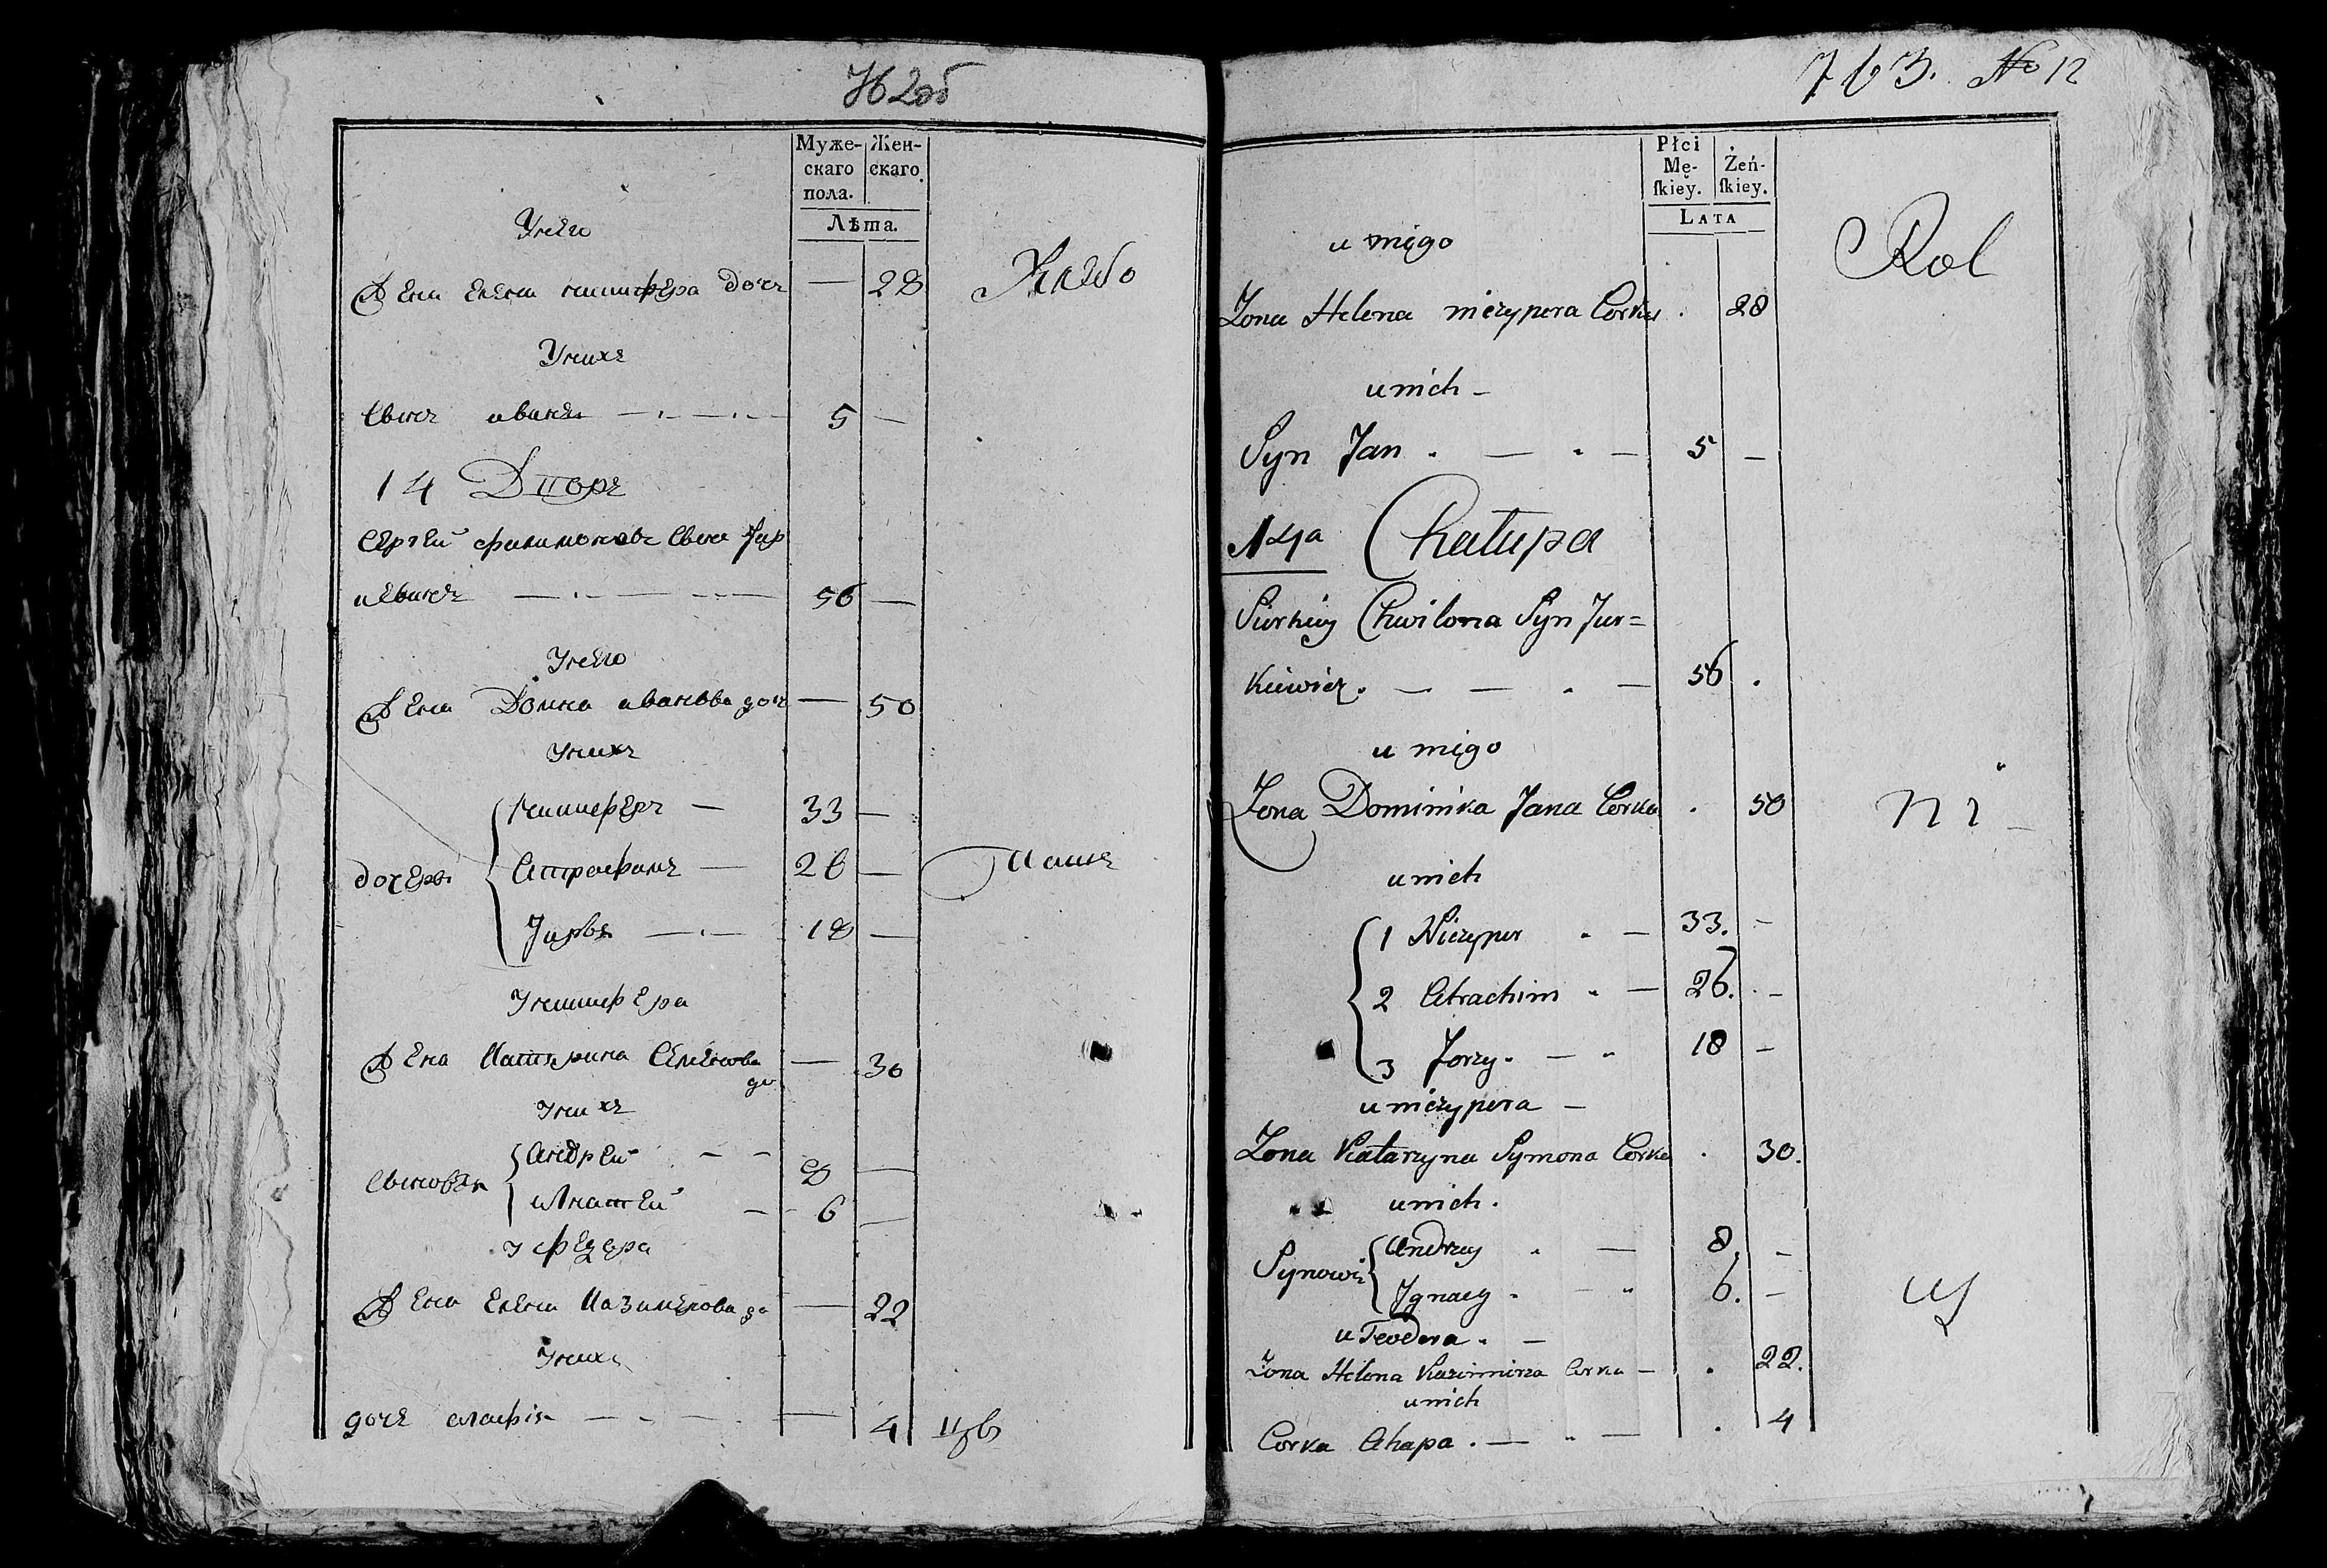 762об
Муже-
скаго
пола.
Жен-
скаго
Лѣта.
Унего
Жена Елена ничиперa дочь — 28
Хлебо
Унихъ
Сынъ иванъ — 5 —
14 Дворъ
Сергей филимоновъ Сынъ Юр
иевичъ — 56 —
Унего
Жена Домна иванова доч — 50
Унихъ
Ничиперъ — 33 —
дочери Атрафимъ — 26 —
Паше
Юрья — 18 —
Уничипера
Жена Катерина Семенова до — 30
Унихъ
Андрей — 8 —
Сыновья Игнатей — 6 —
у федера
Жена Елена Казимерова до — 22
Унихъ
дочь агафія — 4
цы
763. No 12
Płci
Mę-
ſkiey.
Żeń-
ſkiey.
LATA
u niego
Rol
Żona Helena niczypera Corka . 28
unich –
Syn Jan . — . — 5 –
14a Chałupa
Siurhiey Chwilona Syn Jur=
kiewicz . — — . — 56 .
u niego
Żona Dominika Jana Corka . 50
ni
unich
1 Niczyper . — 33. –
2 Atrachim . — 26. . –
3 Jorzy . — . 18 –
uniczypera —
Żona Katarzyna Symona Corka . 30.
unich .
Andrzey . — 8. –
Synowie Ignacy . — " 6. –
cy
u Teodora . —
Żona Helena Kazimierza Corka — . 22.
unich
Corka Ahapa . — " — . 4